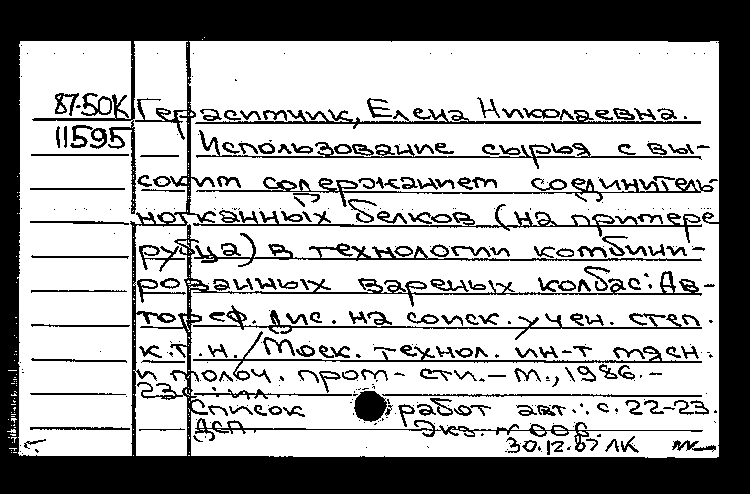 87-50К Герасимчик, Елена Николаевна.
11595 Использование сырья с вы-
соким содержанием соединитель-
нотканных белков (на примере
рубца) в технологии комбини-
рованных вареных колбас: Ав-
тореф. дис. на соиск. учен. степ.
к.т.н. / Моск. технол. ин-т мясн.
и молоч. пром-сти. – М., 1986. –
23с.: ил.
Список работ авт.: с. 22-23.
ДСП. Экз. № 006.
30.12.87 ЛК